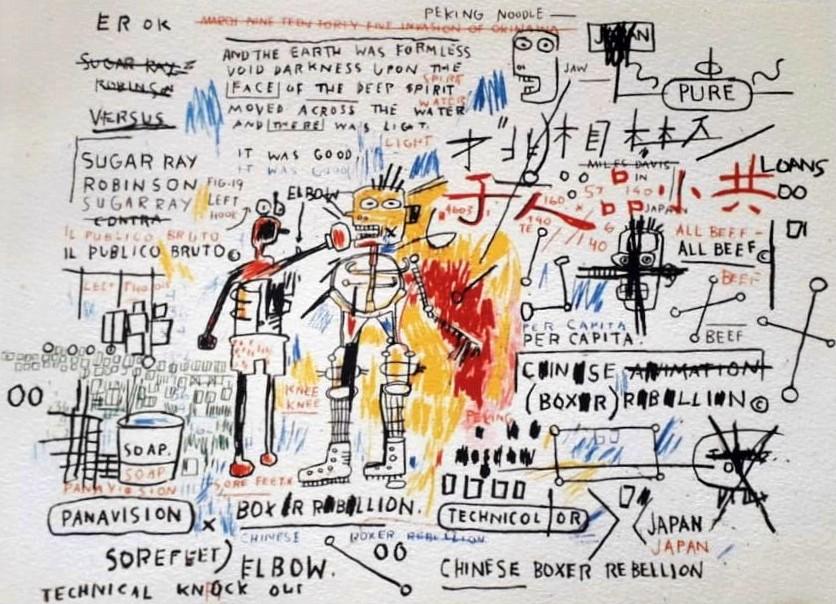 PEKING NOODLE
EROK
MARCH NINETEEN FORTY FIVE INVASION OF OKINAWA
SUGAR RAY
ROBINSON
VERSUS
AND THE EARTH WAS FORMLESS
VOID DARKNESS UPON THE
FACE OF THE DEEP SPIRIT
SPIRIT
MOVED ACROSS THE WATER
WATER
AND THERE WAS LIGHT.
LIGHT
JAW
JAPAN
PURE
SUGAR RAY
ROBINSON
SUGARRAY
CONTRA
IT WAS GOOD
IT WAS GOOD
FIG-19
LEFT
HOOK
ELBOW
IL PUBLICO BRUTO
IL PUBLICO BRUTO©
MILES DAVIS
IN
JAPAN
LOANS
子人品小共
57
160
140
4603
140
TE
6
40
ALL BEEF
ALL BEEF
BEEF
BEEF
PER CAPITA
PER CAPITA.
CHINESE ANIMATION
(BOXER) REBELLION©
KNEE
KNEE
PEKING
SOAP.
SOAP
PANAVISION
PANAVISION
SORE FEET
BOXER REBELLION.
CHINESE BOXER REBELLION
TECHNICOLOR
JAPAN
JAPAN
SOREFEET)
ELBOW.
CHINESE BOXER REBELLION
TECHNICAL KNOCK OUT